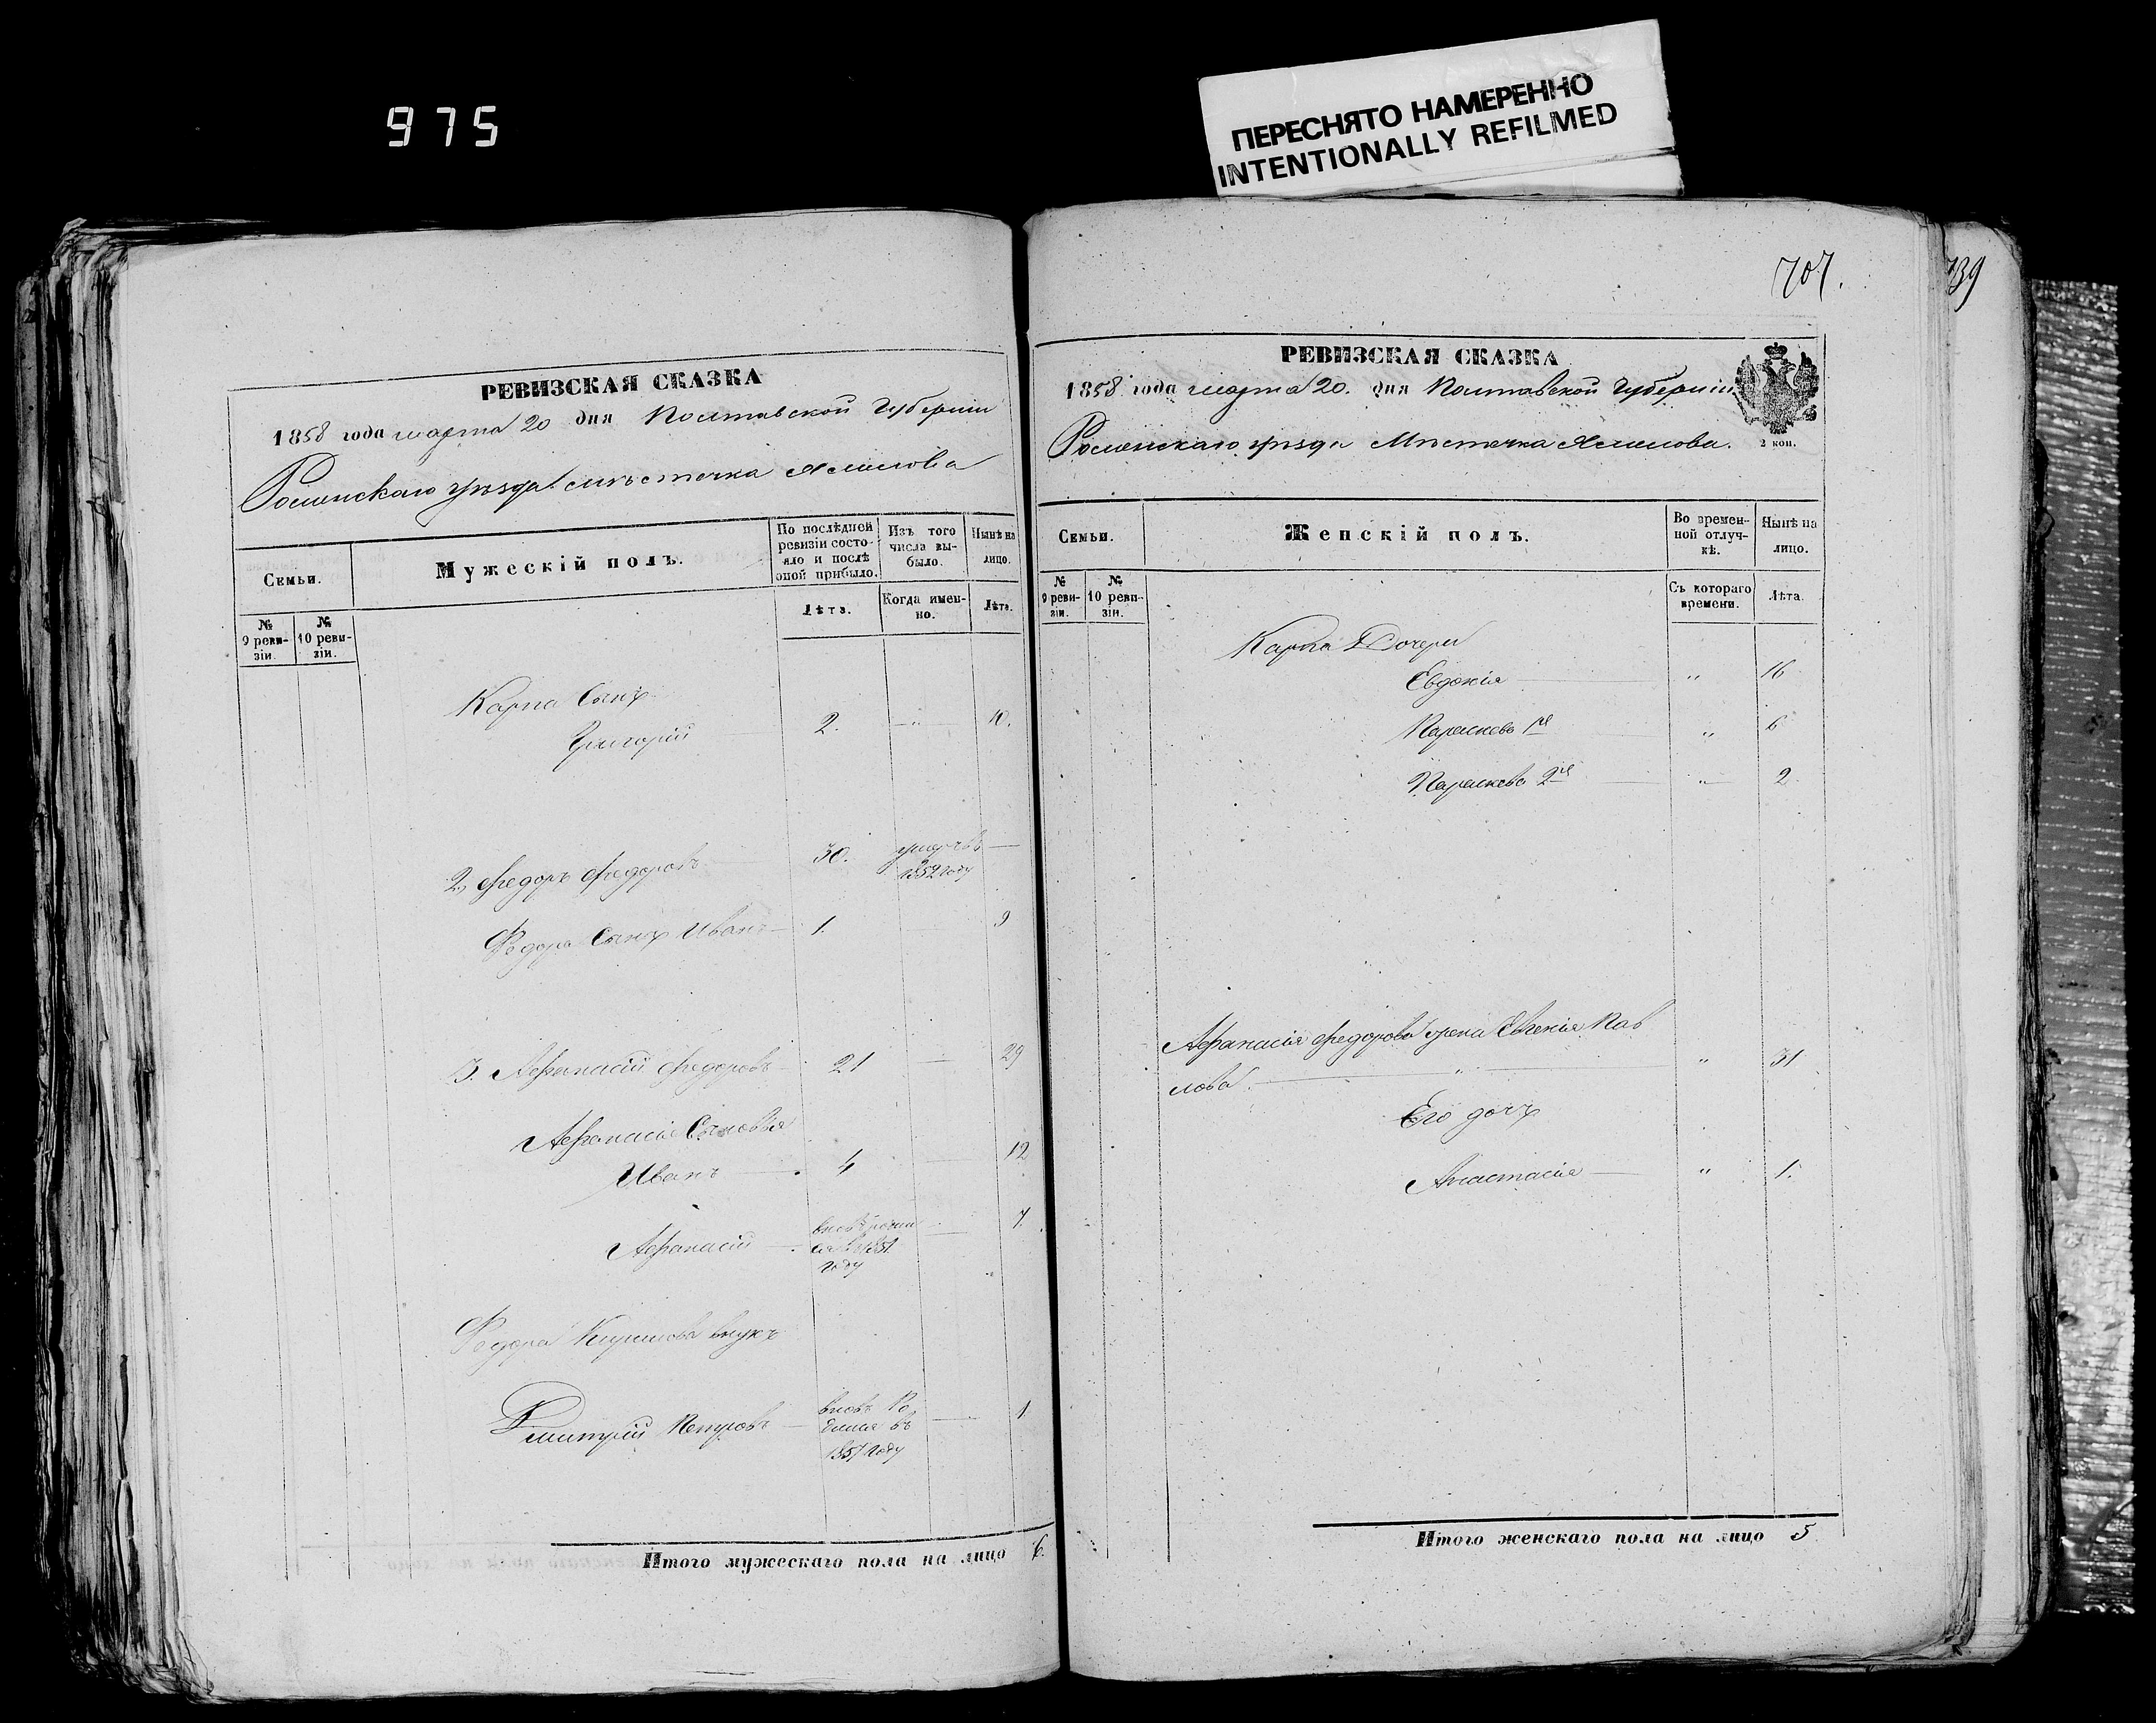 975
ПЕРЕСНЯТО НАМЕРЕННО
INTENTIONALLY REFILMED
РЕВИЗСКАЯ СКАЗКА
1858 года марта 20 дня Полтавской Губерніи
Роменскаго уѣзда мѣстечка Смѣлова
Семьи.
Мужескій полъ.
По послѣдней ревизіи состояло и послѣ оной прибыло.
Изъ того числа выбыло.
Нынѣ на лицо.
№ 9 ревизіи.
№ 10 ревизіи.
Лѣта.
Когда именно.
Лѣта.
Карпа Сынъ
Григорій 2. " 10.
2, Федоръ Федоровъ 30. умеръ въ 1852 году
Федора Сынъ Иванъ 1. 9
3. Афанасій Федоровъ 21 29
Афанасія Сыновья
Иванъ 4 12
Афанасій 7.
году
Федора внукъ
Дмитрій Петровъ вновь Ро- 1
дился въ
1857 году
Итого мужескаго пола на лицо 6.
707.
739
РЕВИЗСКАЯ СКАЗКА
1858 года марта 20. дня Полтавской Губерніи
2 коп.
Роменскаго уѣзда Мѣстечка Смѣлова.
Семьи.
Женскій полъ.
Во временной отлучкѣ.
Нынѣ на лицо.
№ 9 ревизіи.
№ 10 ревизіи.
Съ котораго времени.
Лѣта.
Карпа Дочери
Евдокія " 16
Парасковья 1я " 6
Парасковья 2я " 2
Афанасія Федорова жена Евгенія Пав
лова " " 31
Его дочь
Анастасія " 1.
Итого женскаго пола на лицо 5